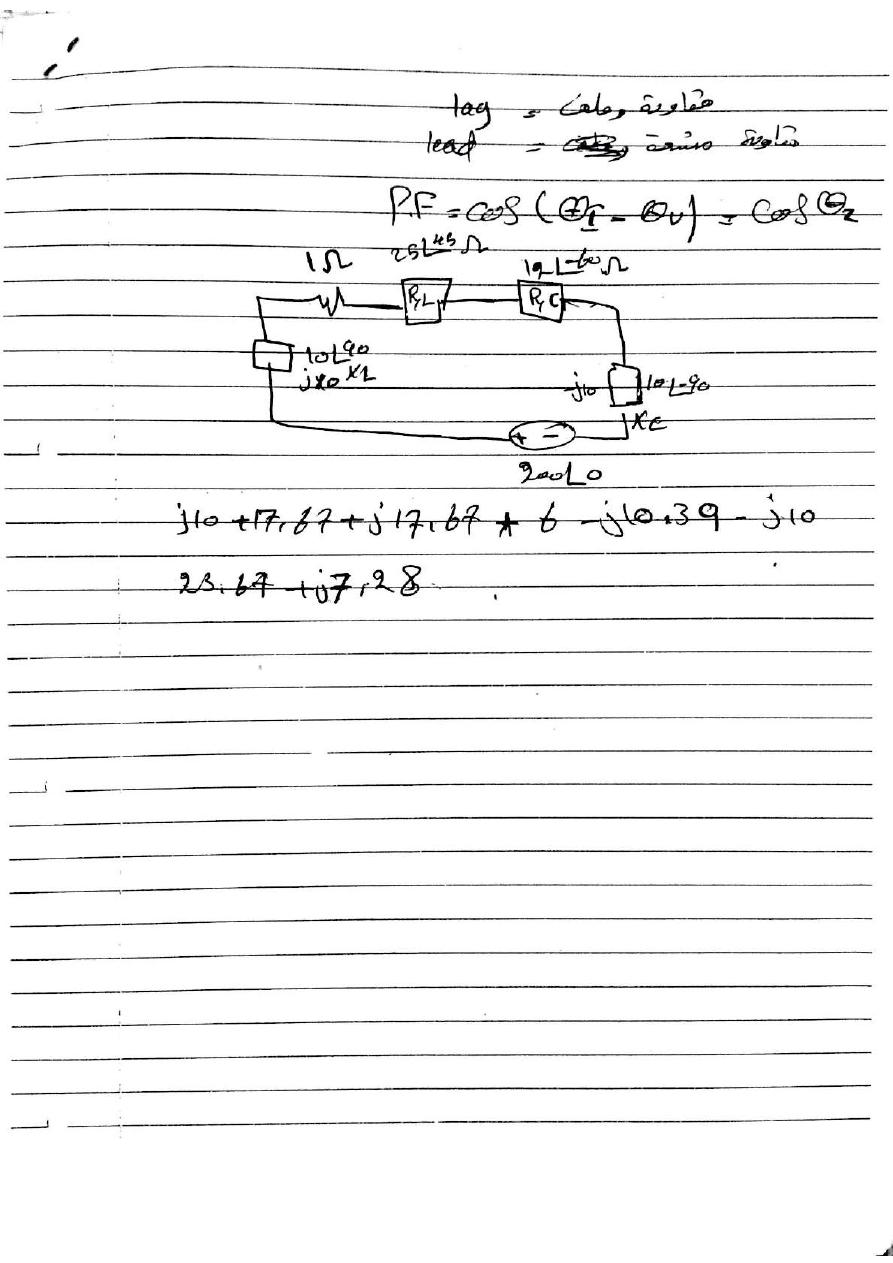 lag = مقاومة وملف
lead = مقاومة متسعة
P.F = cos (θI - θv) = cos θz
1Ω 25∟45 Ω 12∟-60 Ω
R,L R,C
10∟90
j10 XL
-j10 10∟-90
XC
+ -
200∟0
j10 + 17,67 + j17,67 + 6 - j10.39 - j10
23.67 + j7,28